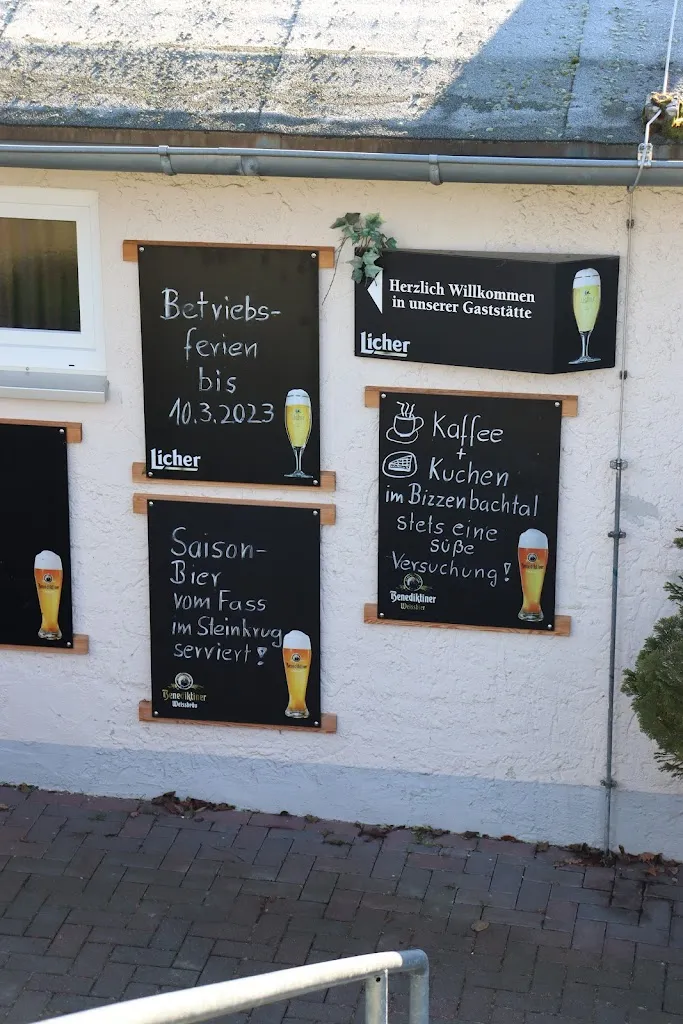 Betriebs-
ferien
bis
10.3.2023
Licher
Herzlich Willkommen
in unserer Gaststätte
Licher
Saison-
Bier
vom Fass
im Steinkrug
serviert!
Benediktiner
Weissbräu
Kaffee
+
Kuchen
im Bizzenbachtal
stets eine
süße
Versuchung!
Benediktiner
Weissbier